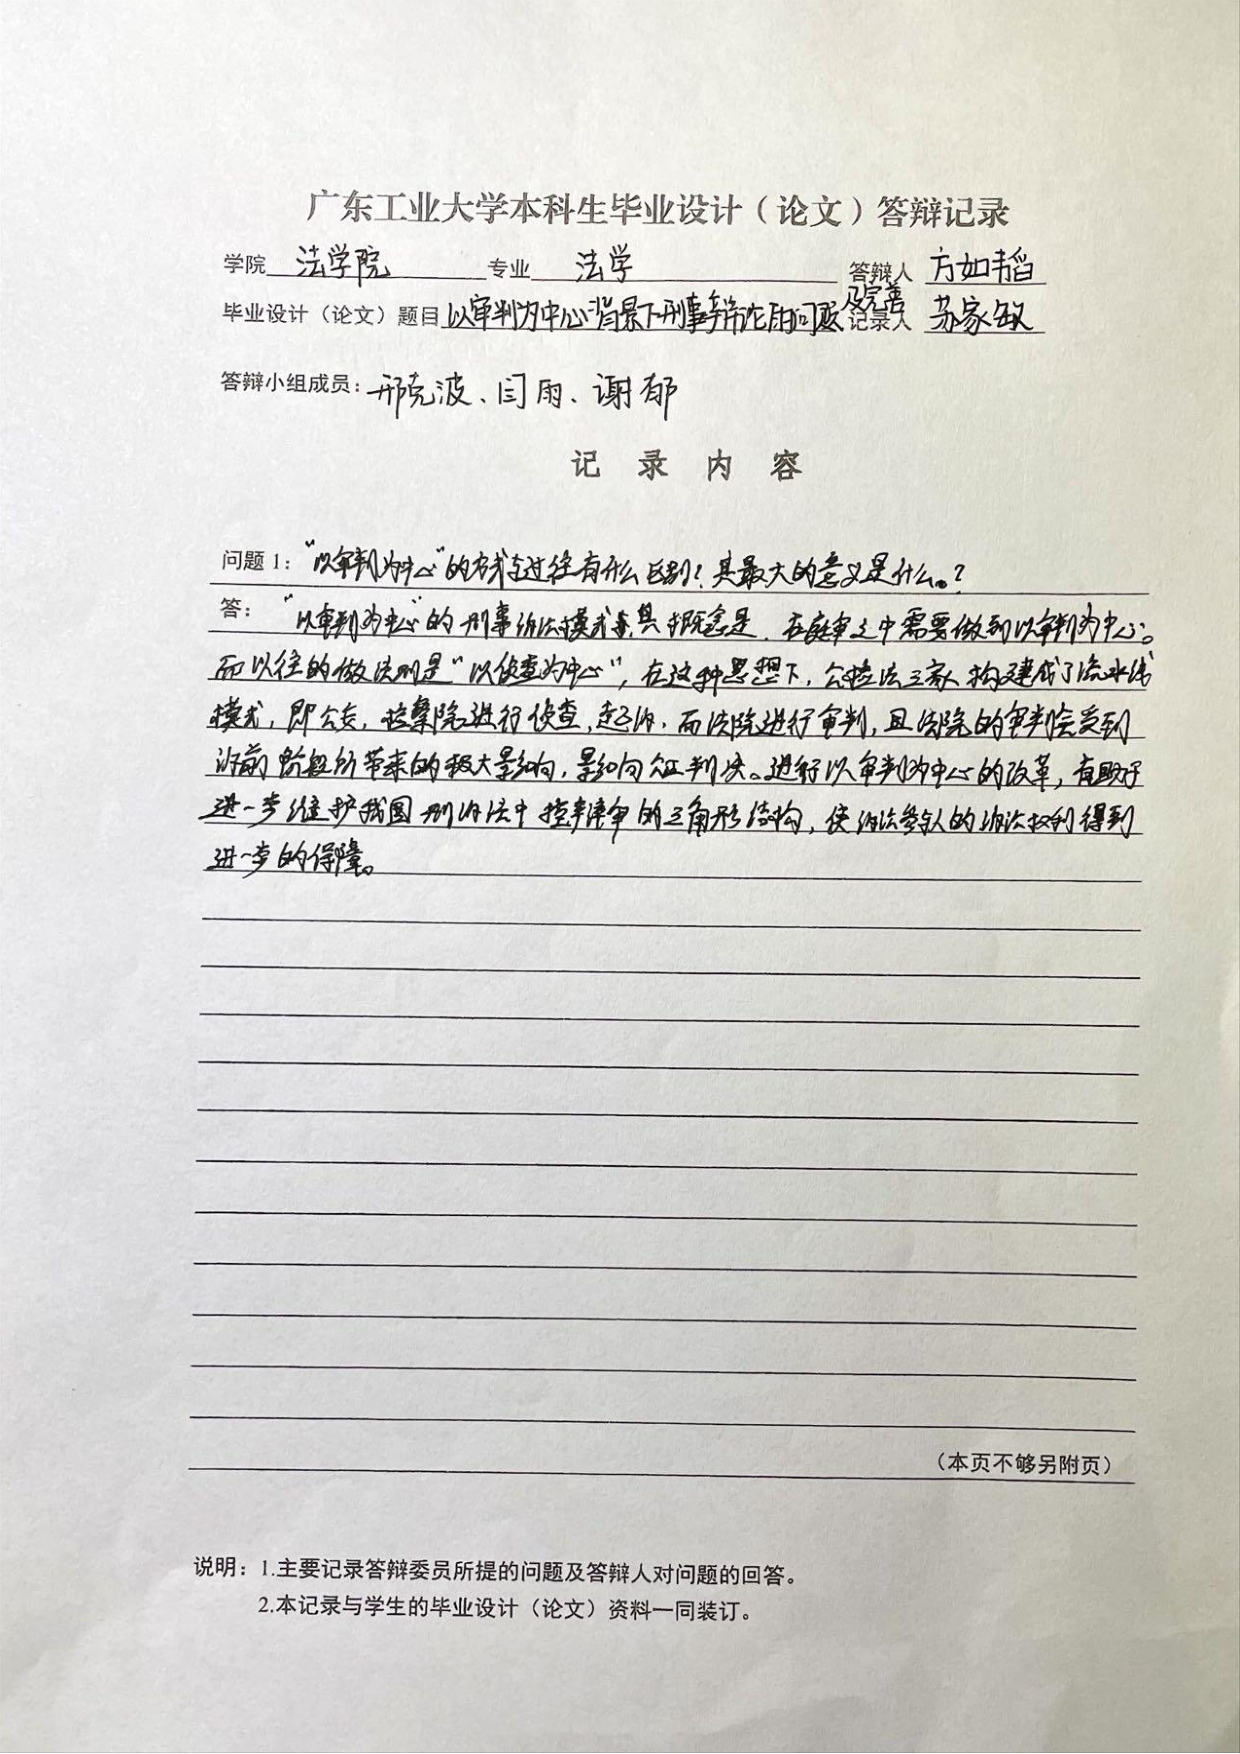 广东工业大学本科生毕业设计（论文）答辩记录
学院 法学院 专业 法学 答辩人 方如韬
毕业设计（论文）题目 以审判为中心背景下刑事辩论的问题及完善 记录人 苏家敏
答辩小组成员：邢克波、闫雨、谢郁
记 录 内 容
问题 1：“以审判为中心”的方式与过往有什么区别？其最大的意义是什么。？
答：“以审判为中心”的刑事诉讼模式 其概念是，在庭审之中需要做到以审判为中心。
而以往的做法则是“以侦查为中心”，在这种思想下，公检法三家构建成了流水线
模式，即公安，检察院进行侦查，起诉，而法院进行审判，且法院的审判会受到
诉前阶段所带来的极大影响，影响公正判决。进行以审判为中心的改革，有助于
进一步维护我国刑诉法中控辩审的三角形结构，使诉讼参与人的诉讼权利得到
进一步的保障。
（本页不够另附页）
说明：1.主要记录答辩委员所提的问题及答辩人对问题的回答。
2.本记录与学生的毕业设计（论文）资料一同装订。